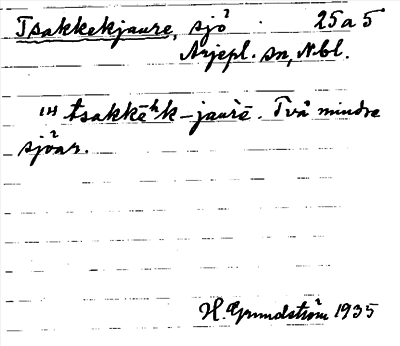 Tsakkekjaure, sjö 25a5
Arjepl. sn, Nbl.
tsakkēʰk-jaurē. Två mindre
sjöar.
H. Grundström 1935